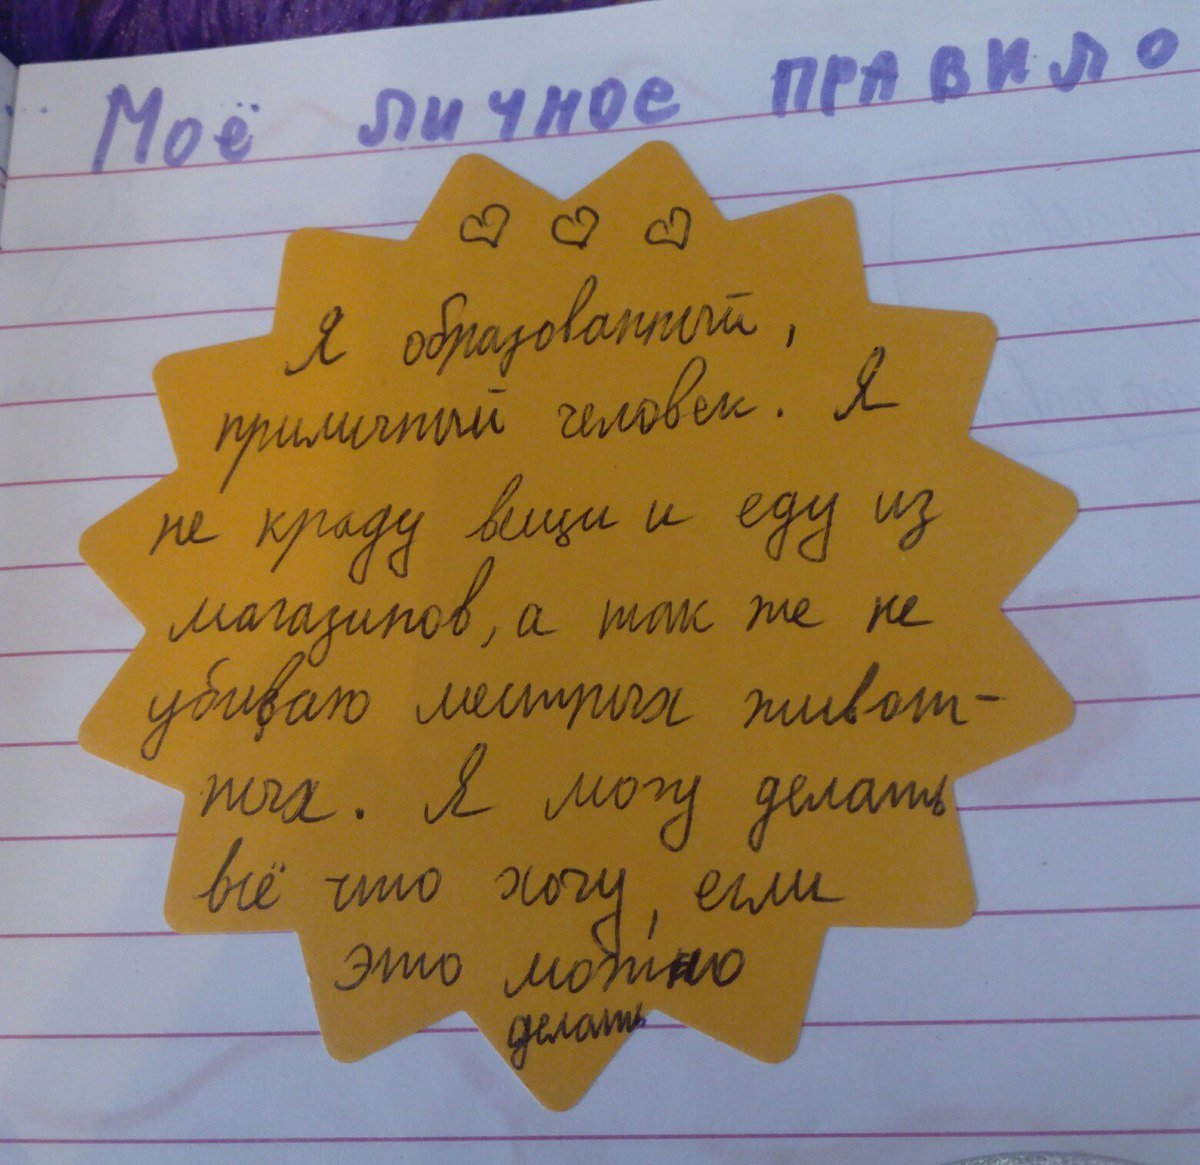 Моё личное правило
Я образованный,
приличный человек. Я
не краду вещи и еду из
магазинов, а так же не
убиваю местных живот-
ных. Я могу делать
всё что хочу, если
это можно
делать